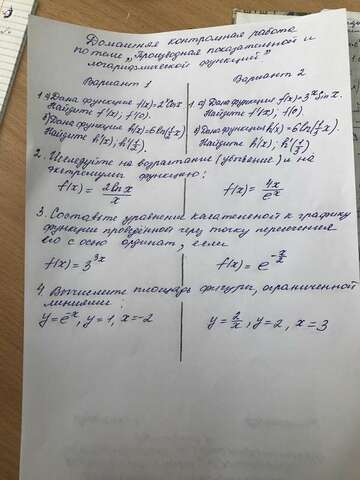 Домашняя контрольная работа
по теме „Производная показательной и
логарифмической функций"
Вариант 1
1 а) Дана функция f(x)=2ˣcosx
Найдите f'(x), f'(0).
б) Дана функция h(x)=6ln(
Найдите h'(x), h'(
Вариант 2
1. а) Дана функция f(x)=3ˣsinx.
Найдите f'(x), f'(0).
б) Дана функция h(x)=6ln(
Найдите h'(x); h'(
2. Исследуйте на возрастание (убывание) и на
экстремумы функцию:
f(x) = 2lnx/x
f(x) = 4x/eˣ
3. Составьте уравнение касательной к графику
функции проведённой через точку пересечения
его с осью ординат, если
f(x) = 3³ˣ
f(x) = e^(-x/2)
4. Вычислите площадь фигуры, ограниченной
линиями:
y=1, x=-2
y=2, x=3